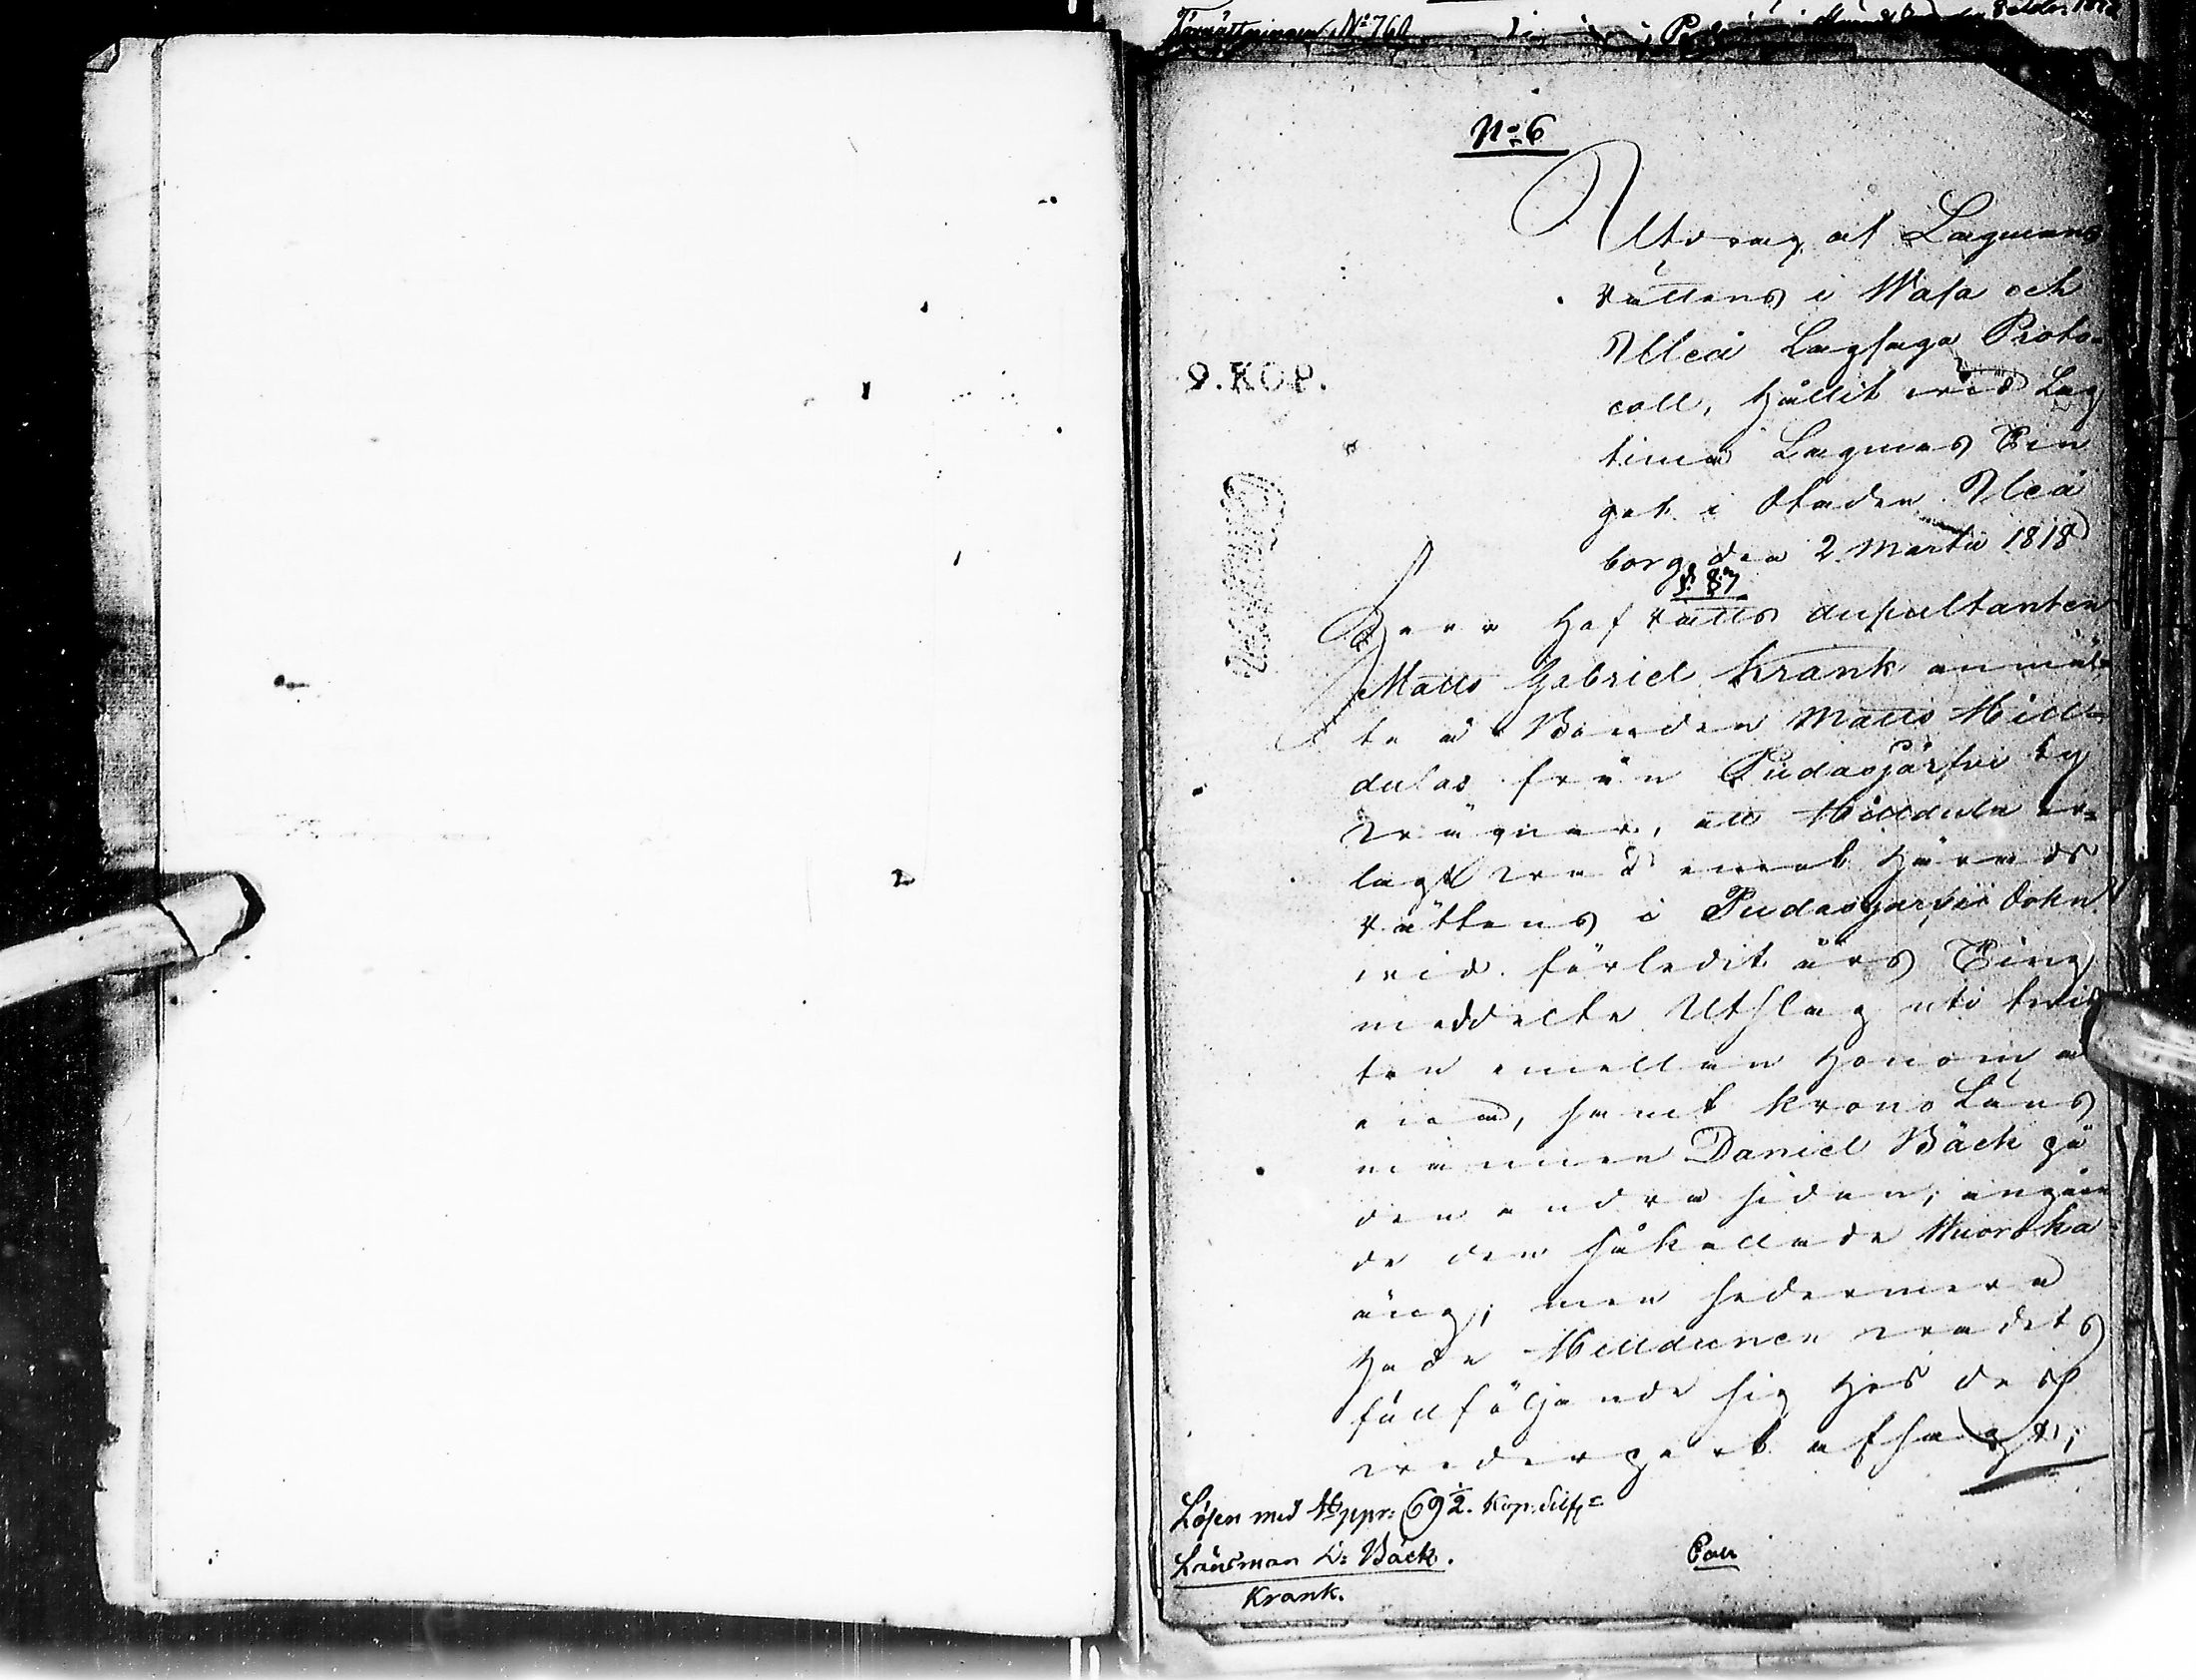 Förrättningen No 760
No 6
Utdrag af Lagmans
Rättens i Wasa och
Uleå Lagsaga Proto-
coll, hållit vid Lag
tima Lagmans Tin
get i Staden Uleå
borg den 2 Martii 1818
§ 87
9. KOP.
Herr Hof Rätts Auscultanten
Matts Gabriel Krank anmäl-
te å Bonden Matts Hill-
dulas från Pudasjärfvi By
vägnar, att Hilldula er-
lagt vad emot Härads
Rättens i Pudasjärfvi Sokn
vid förledit års Ting
meddelte Utslag uti tvis
ten emellan honom å
ena, samt Krono Läns
mannen Daniel Bäck på
den andra sidan, angåen
de den såkallade Wuorska
äng; men sedermera
hade Hilldunen vadets
fullföljande sig hos dess
vederpart afsagt;
Lösen med Chppr: 69½. Kop. Silfr=
Länsman D: Bäck.
Krank.